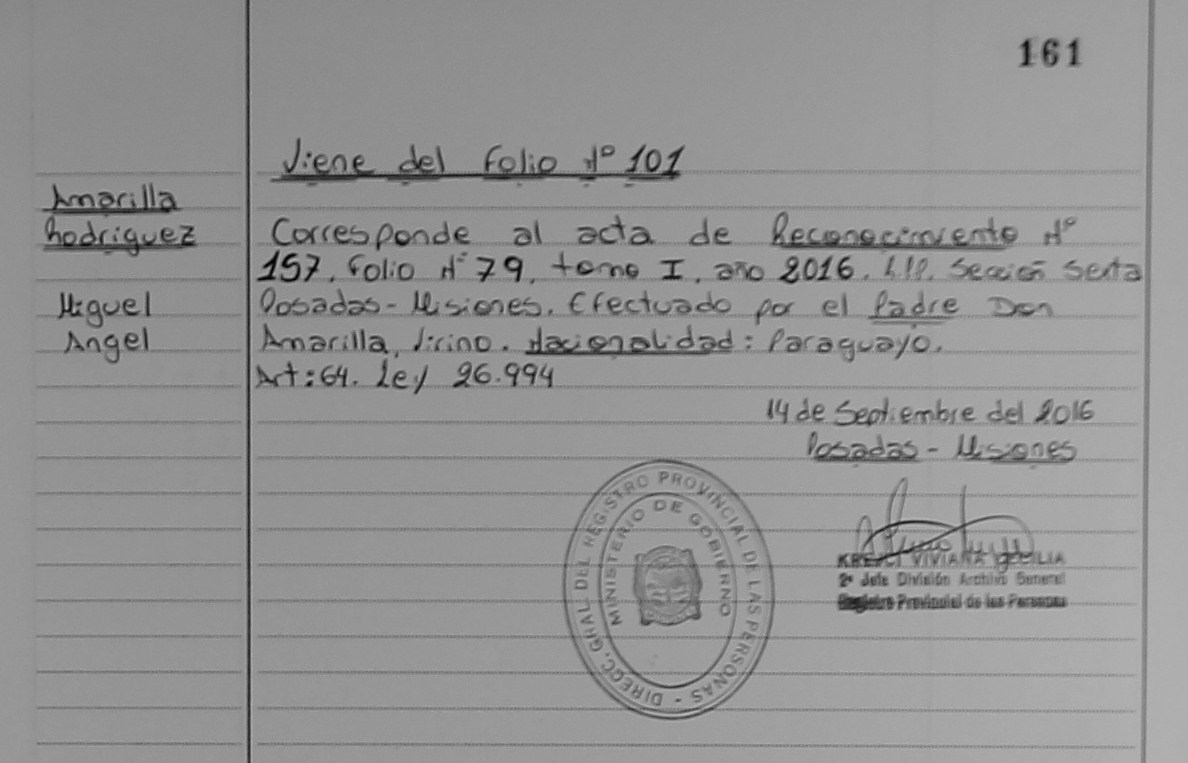 161
Viene del Folio N° 101
Amarilla
Rodriguez
Miguel
Angel
Corresponde al acta de Reconocimiento N°
157, Folio N° 79, tomo I, año 2016. Sección Sexta
Posadas - Misiones. Efectuado por el Padre Don
Amarilla, Nacionalidad: Paraguayo.
Art: 64. Ley 26.994
14 de Septiembre del 2016
Posadas - Misiones
DIRECC. GRAL. DEL REGISTRO PROVINCIAL DE LAS PERSONAS -
MINISTERIO DE GOBIERNO
VIVIANA CECILIA
2° Jefe División Archivo General
Registro Provincial de las Personas